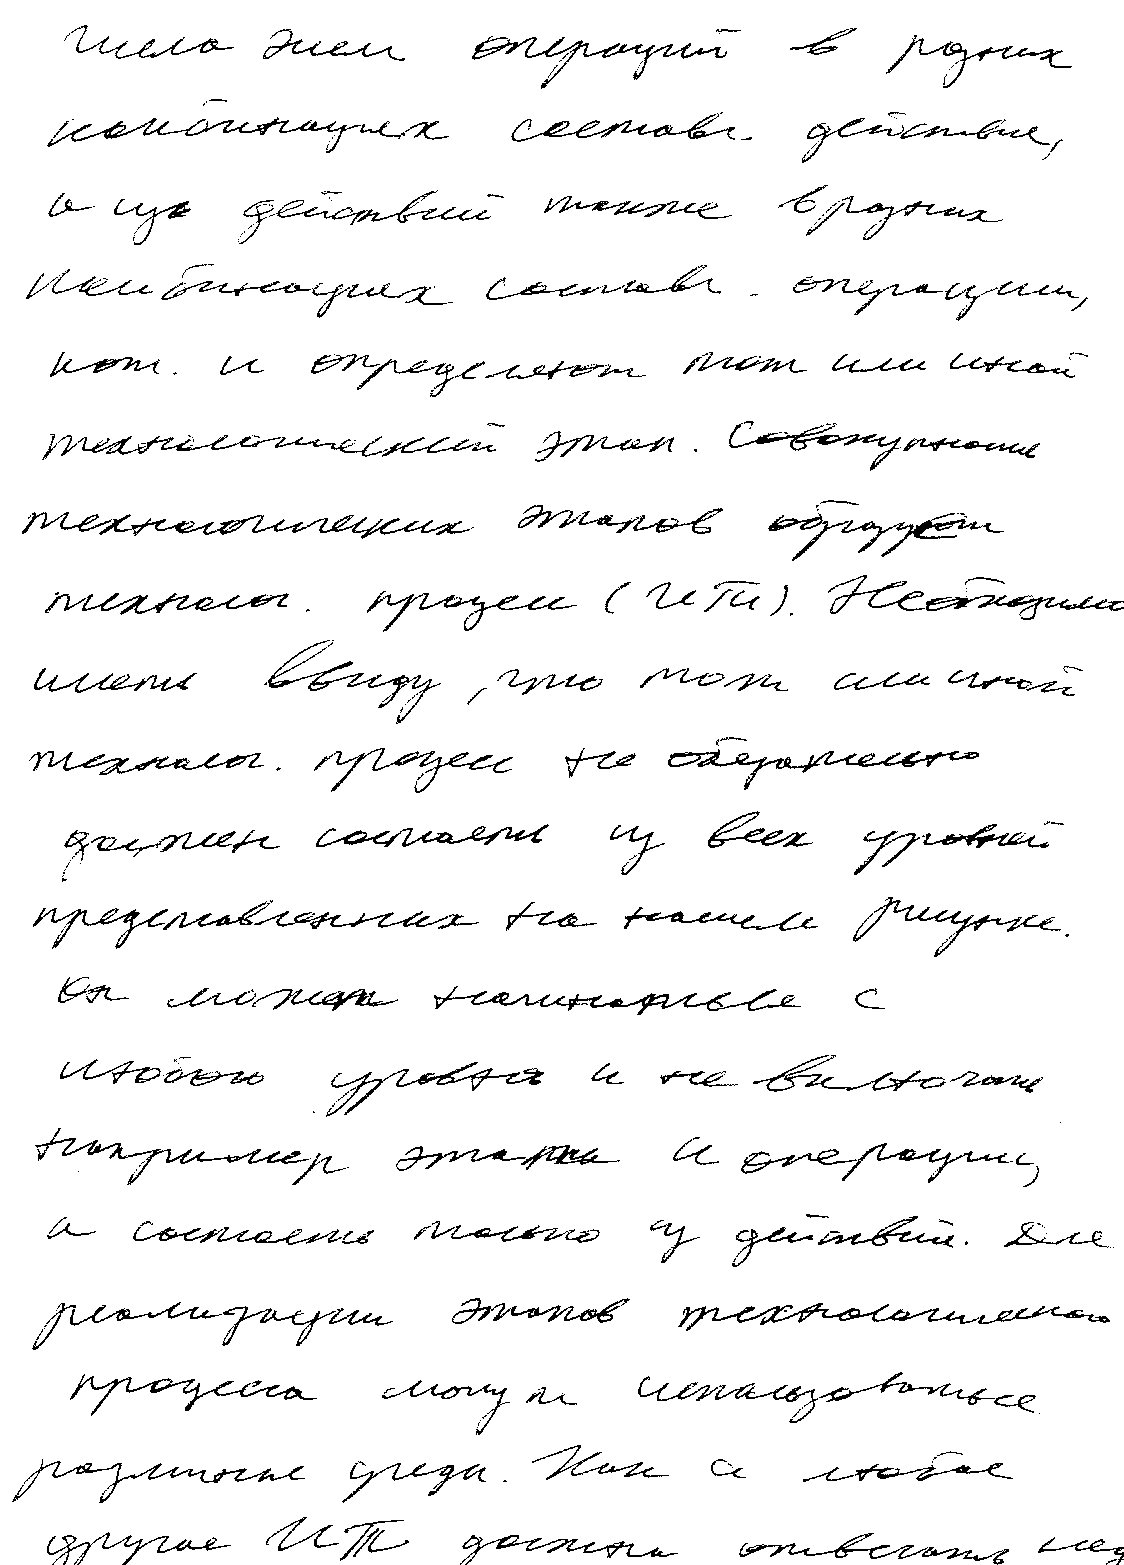 число элем операций в разных
комбинациях составл действие,
а из действий также в разных
комбинациях составл. операции,
кот. и определяют тот или иной
технологический этап. Совокупность
технологических этапов образует
технолог. процесс (ИТП). Необходимо
иметь ввиду, что тот или иной
технолог. процесс не обязательно
должен состоять из всех уровней
представленных на нашем рисунке.
Он может начинаться с
любого уровня и не включать
например этапы и операции,
а состоять только из действий. Для
реализации этапов технологического
процесса могут использоваться
различные среды. Как и любое
другое ИТ должна отвечать